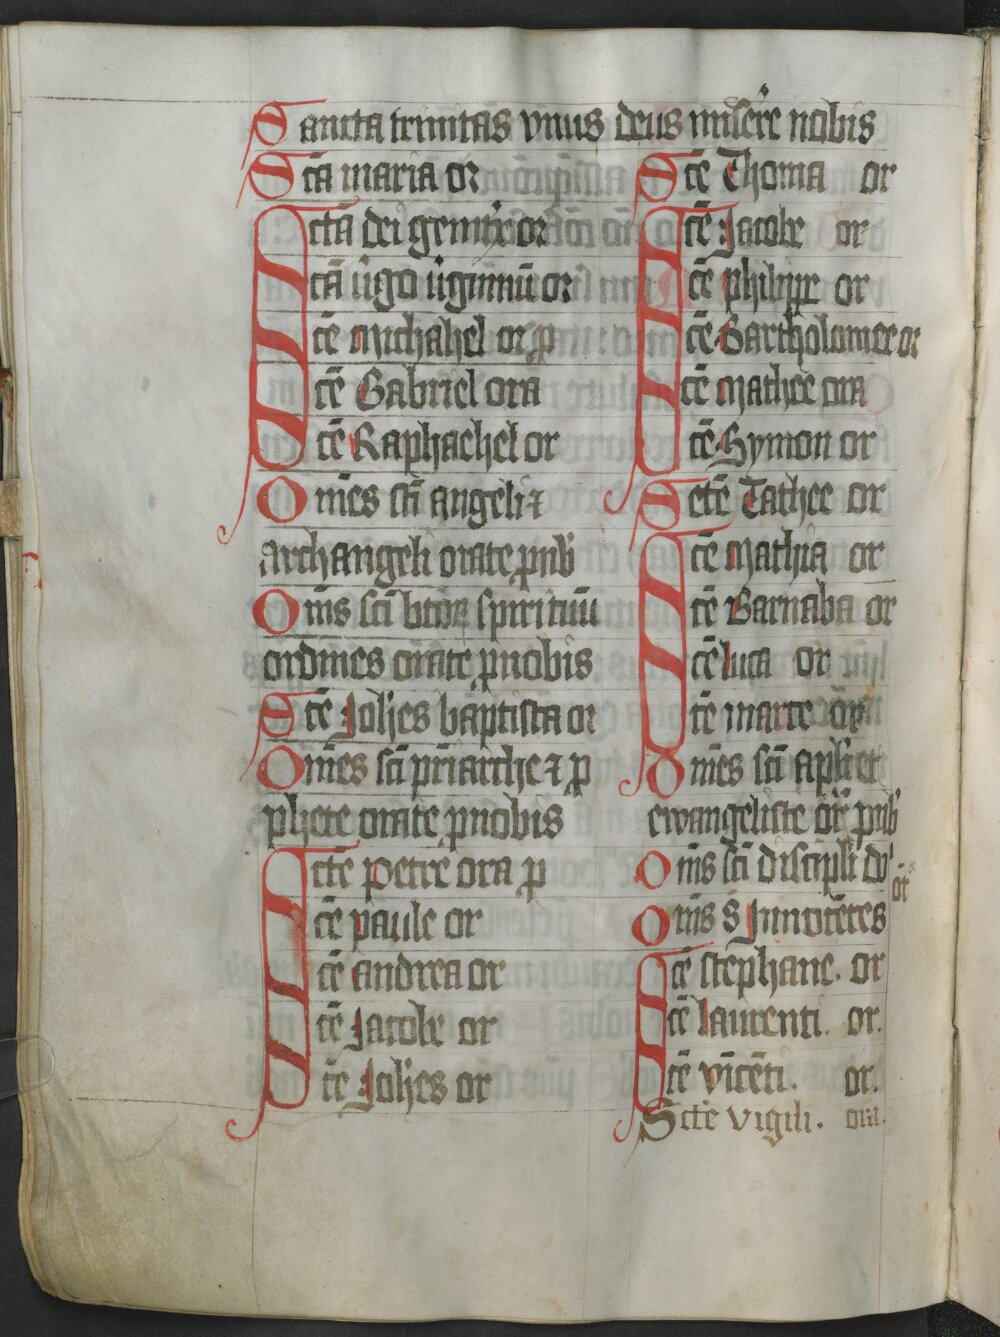 Sancta trinitas vnus deus miserere nobis
Scā maria or
Sctā dei genitrix or
Sctā ũgo ũginum or
Sctē Michahel or p
Sctē Gabriel ora
Sctē Raphachel or
Om̄es sc̄i angeli ⁊
archangeli orate p nob
Om̄s sc̄i btōrꝝ spirituū
ordines orate p nobis
Sctē Joh̄es baptista or
Om̄es sc̄i pr̄iarche ⁊ p
phete orate p nobis
Sctē petre ora p
Sctē paule or
Sctē andrea or
Sctē Jacobe or
Sctē Joh̄es or
Sctē Thoma or
Sctē Jacobe or
Sctē philippe or
Sctē Bartholomee or
Sctē mathee ora
Sctē Symon or
Sctē Tathee or
Sctē mathia or
Sctē Barnaba or
Sctē luca or
Sctē marce or
Om̄es sc̄i apl̄i et
ewangeliste or̄ p nob
Om̄s sc̄i discipl̄i dn̄i or̄
Om̄s s̄ Innocētes
Sctē stephane. or
Sctē laurenti. or.
Sctē vīcēti. or.
Sctē vigili. ora.